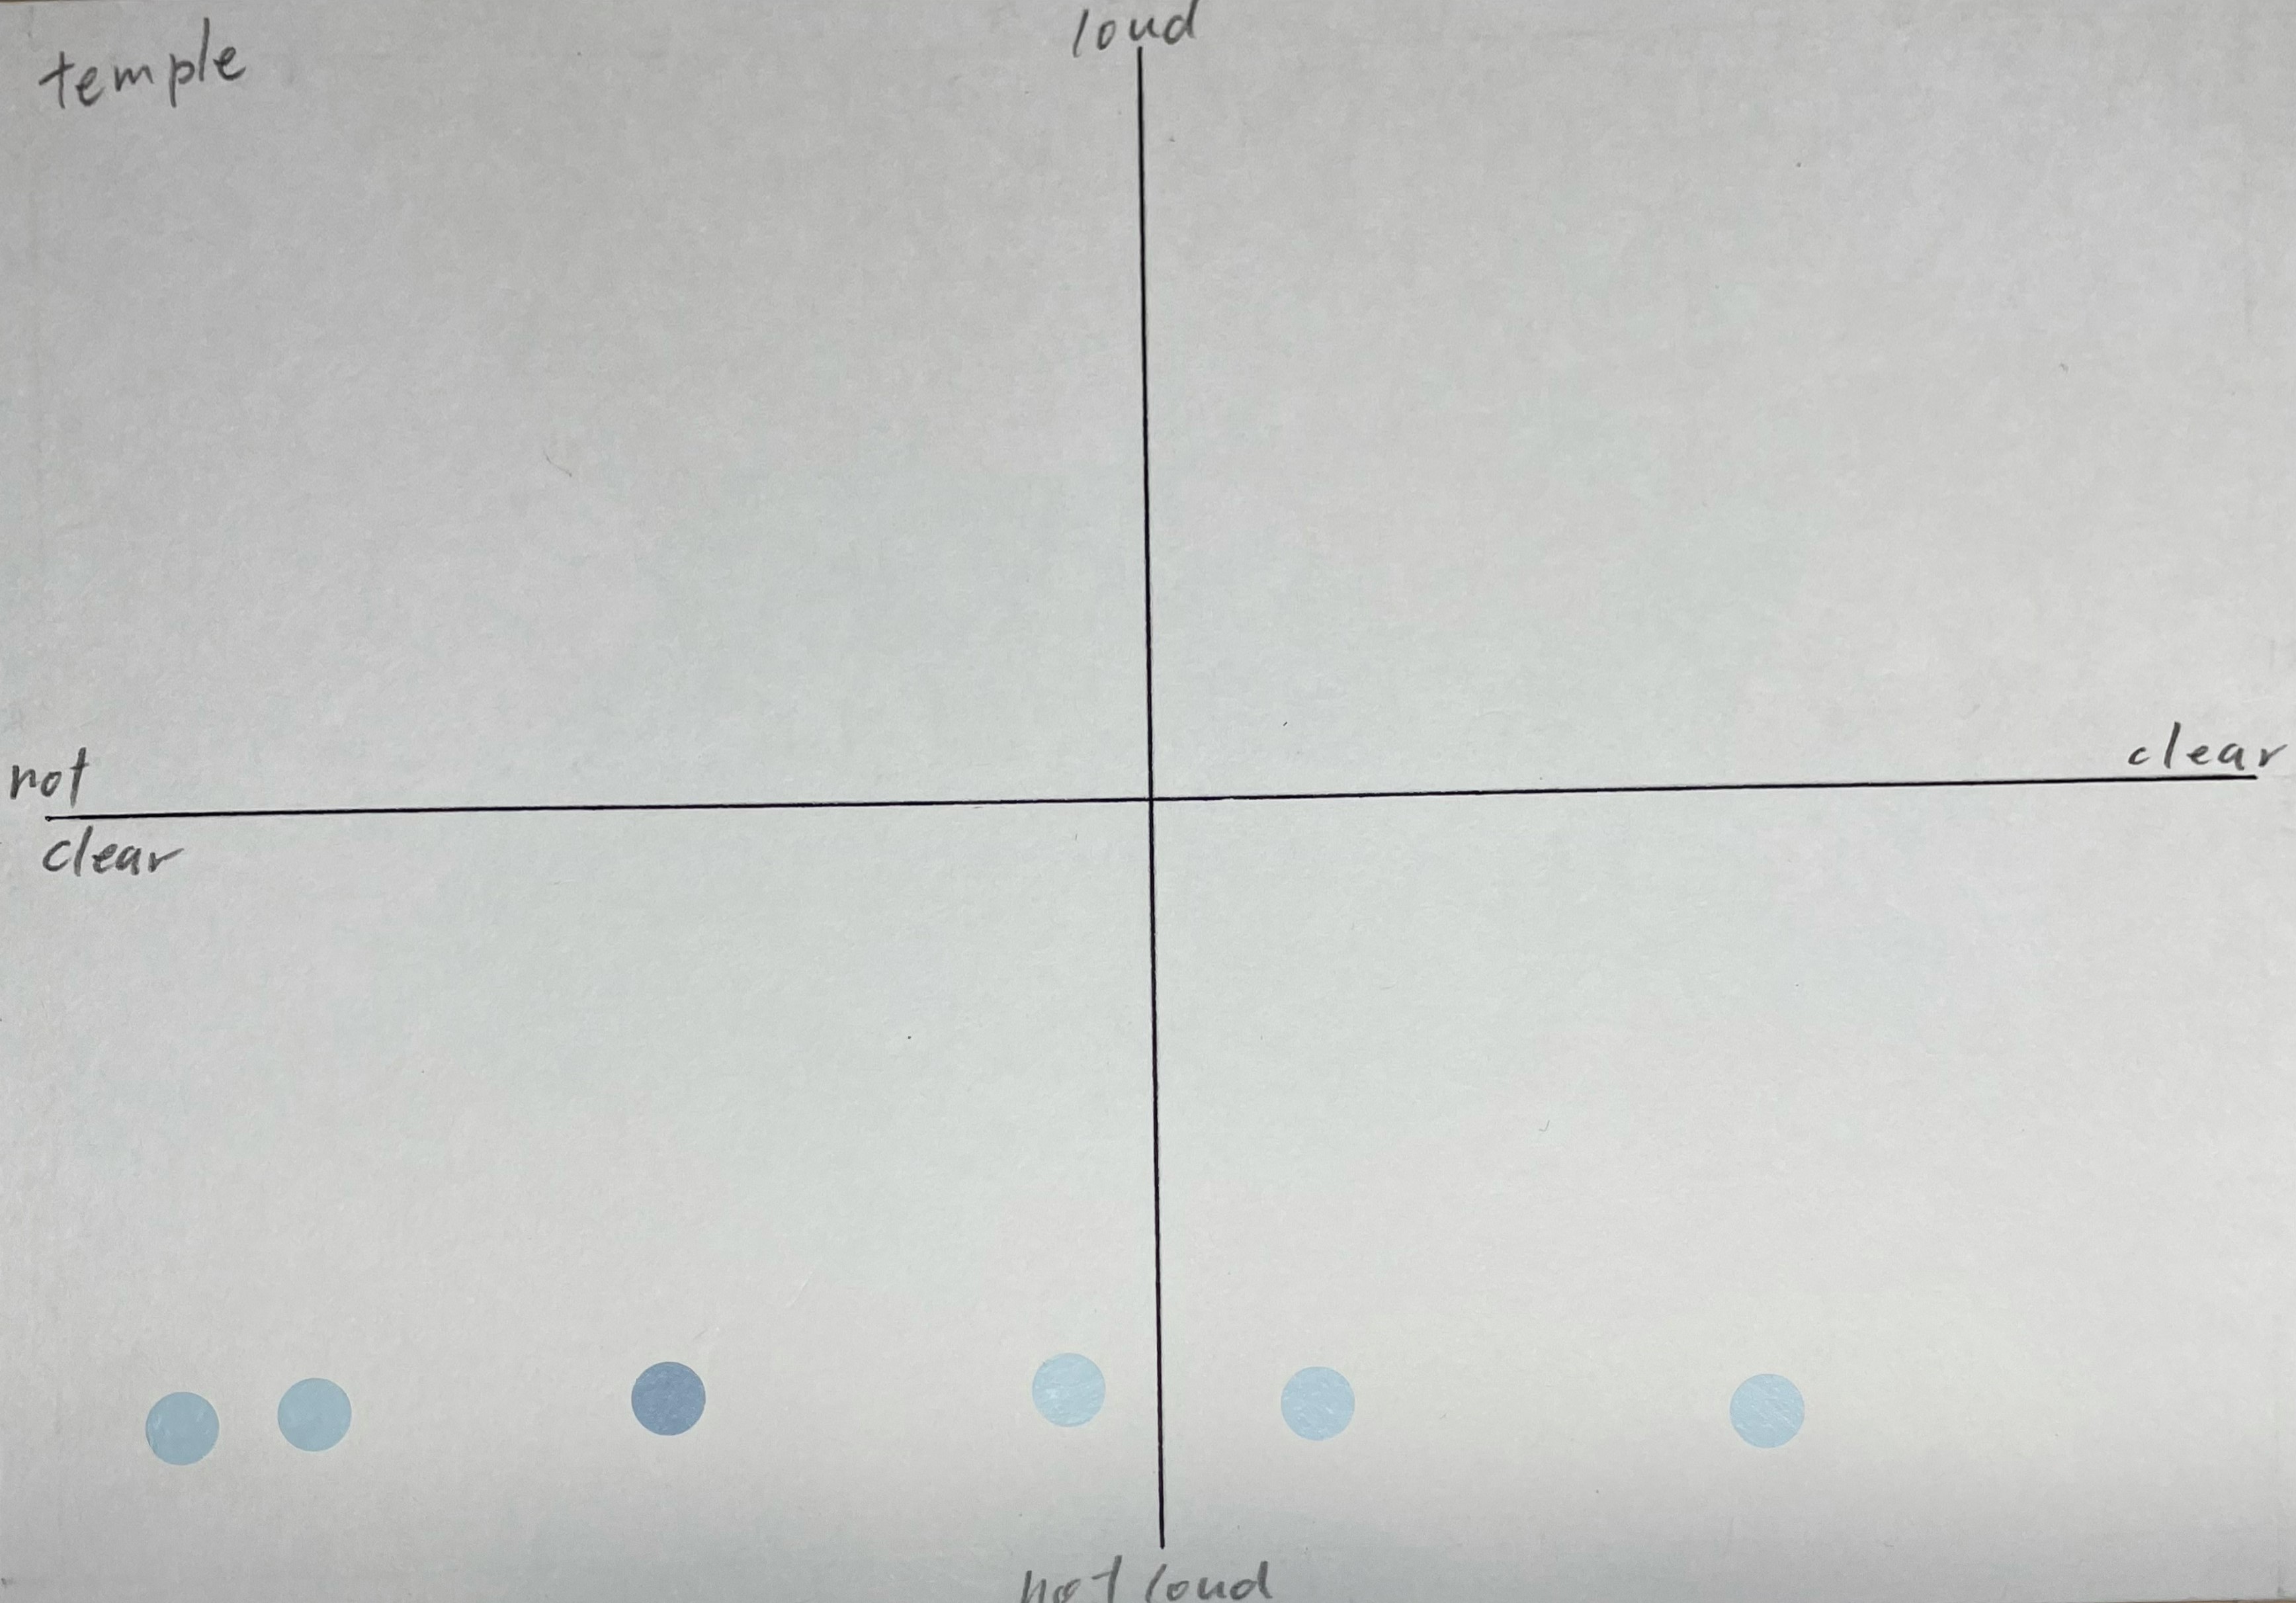 temple
loud
not
clear
clear
not loud